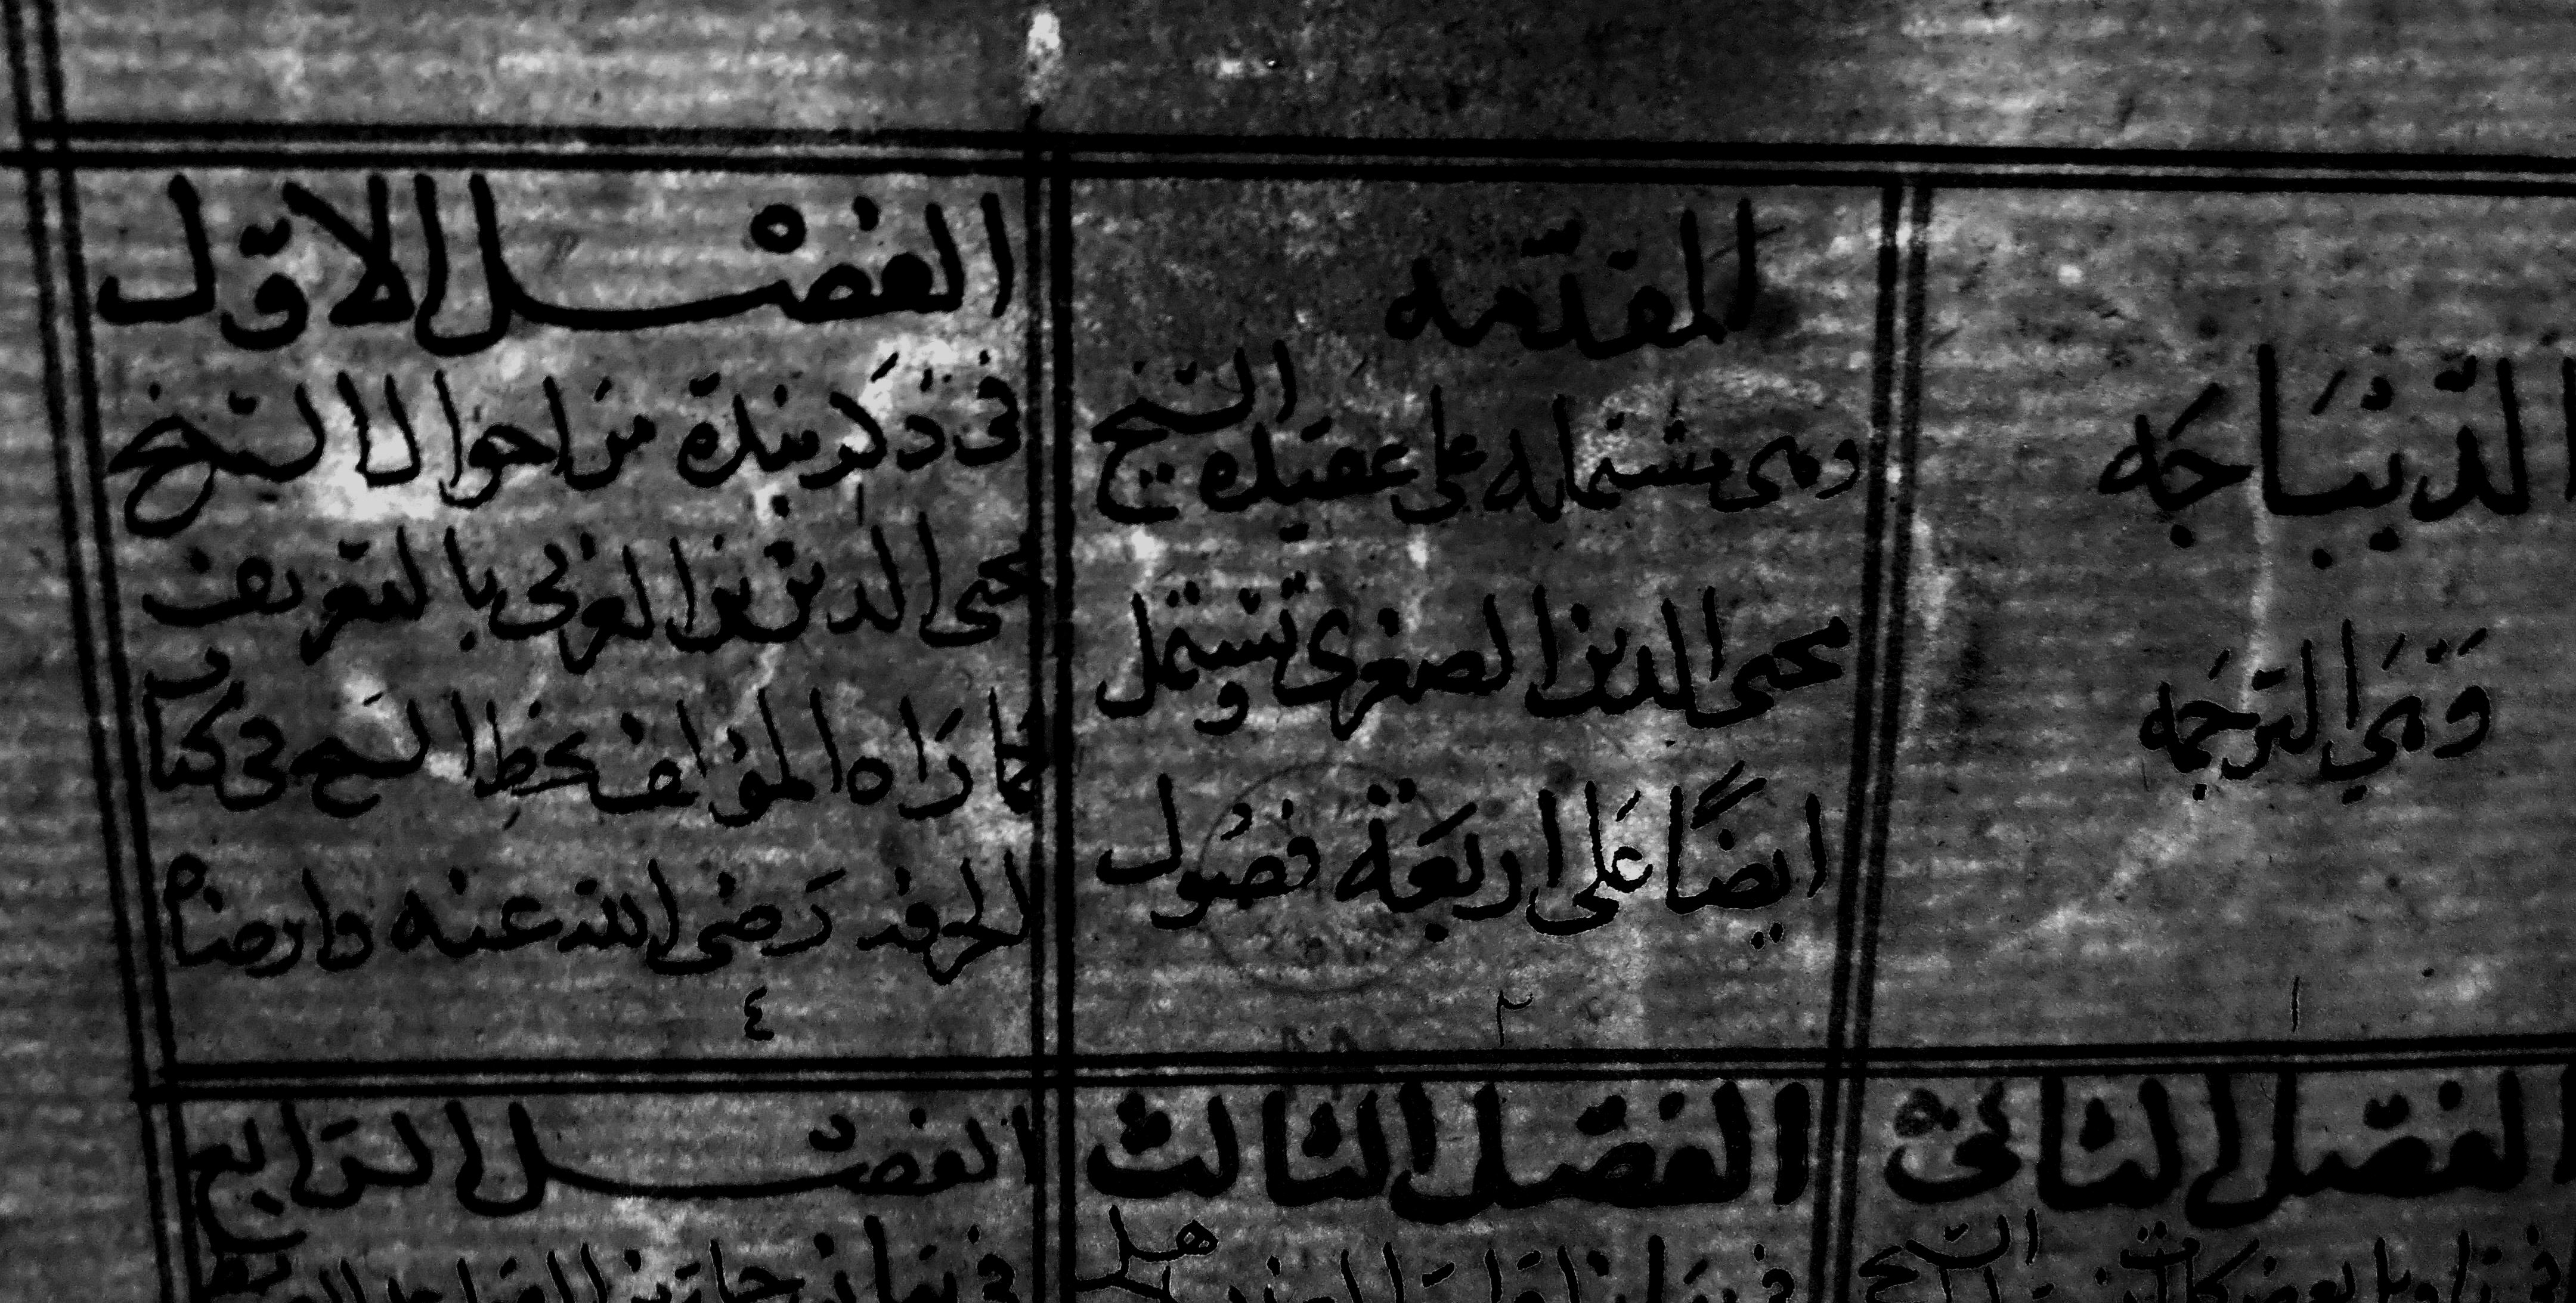 الدّيْبَاجَه
وَهِيَ الترجَمه
١
المقدّمه
وهى مشتمله على عقيده الشيخ
محى الدين الصغرى وتشتمل
ايضًا عَلى اربعَة فصُول
٢
الفصْل الاوّل
فى ذكر نبذة من احوال الشيخ
محى الدين بن العربى بالتعريف
كما رَاه المؤلف بخط الشيخ فى كتاب
الحرف رَضى الله عنه وارضاه
٤
الفصْل الثانى
الفصْل الثالث
الفصْل الرَابع